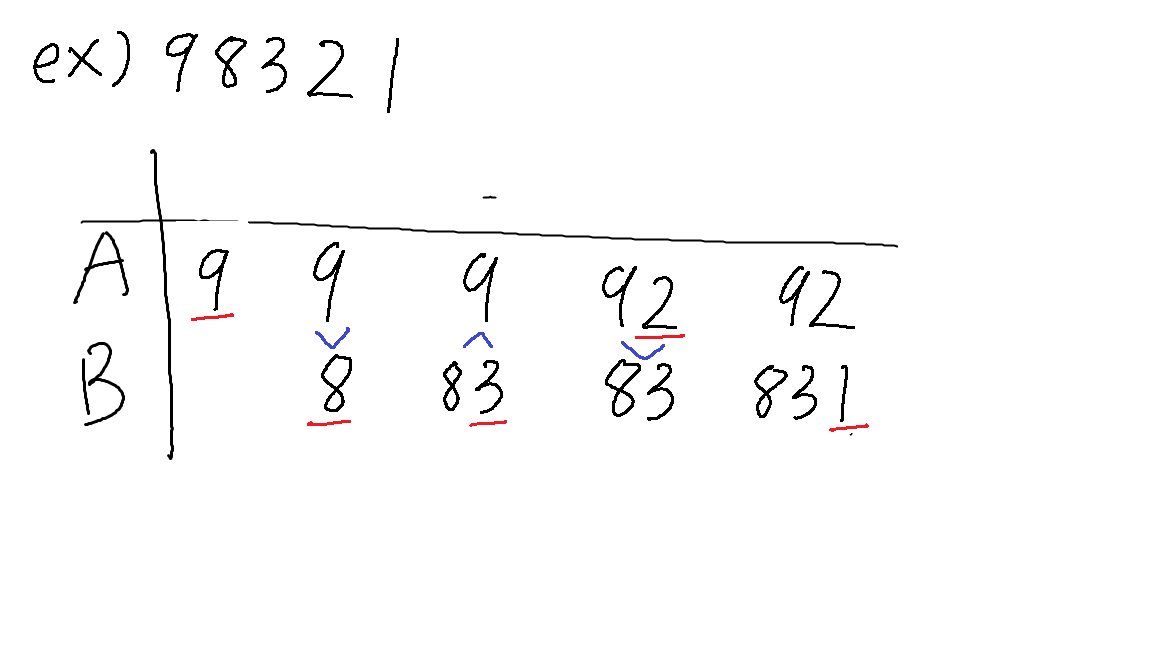 ex) 98321
A 9 9 9 92 92
B 8 83 83 831